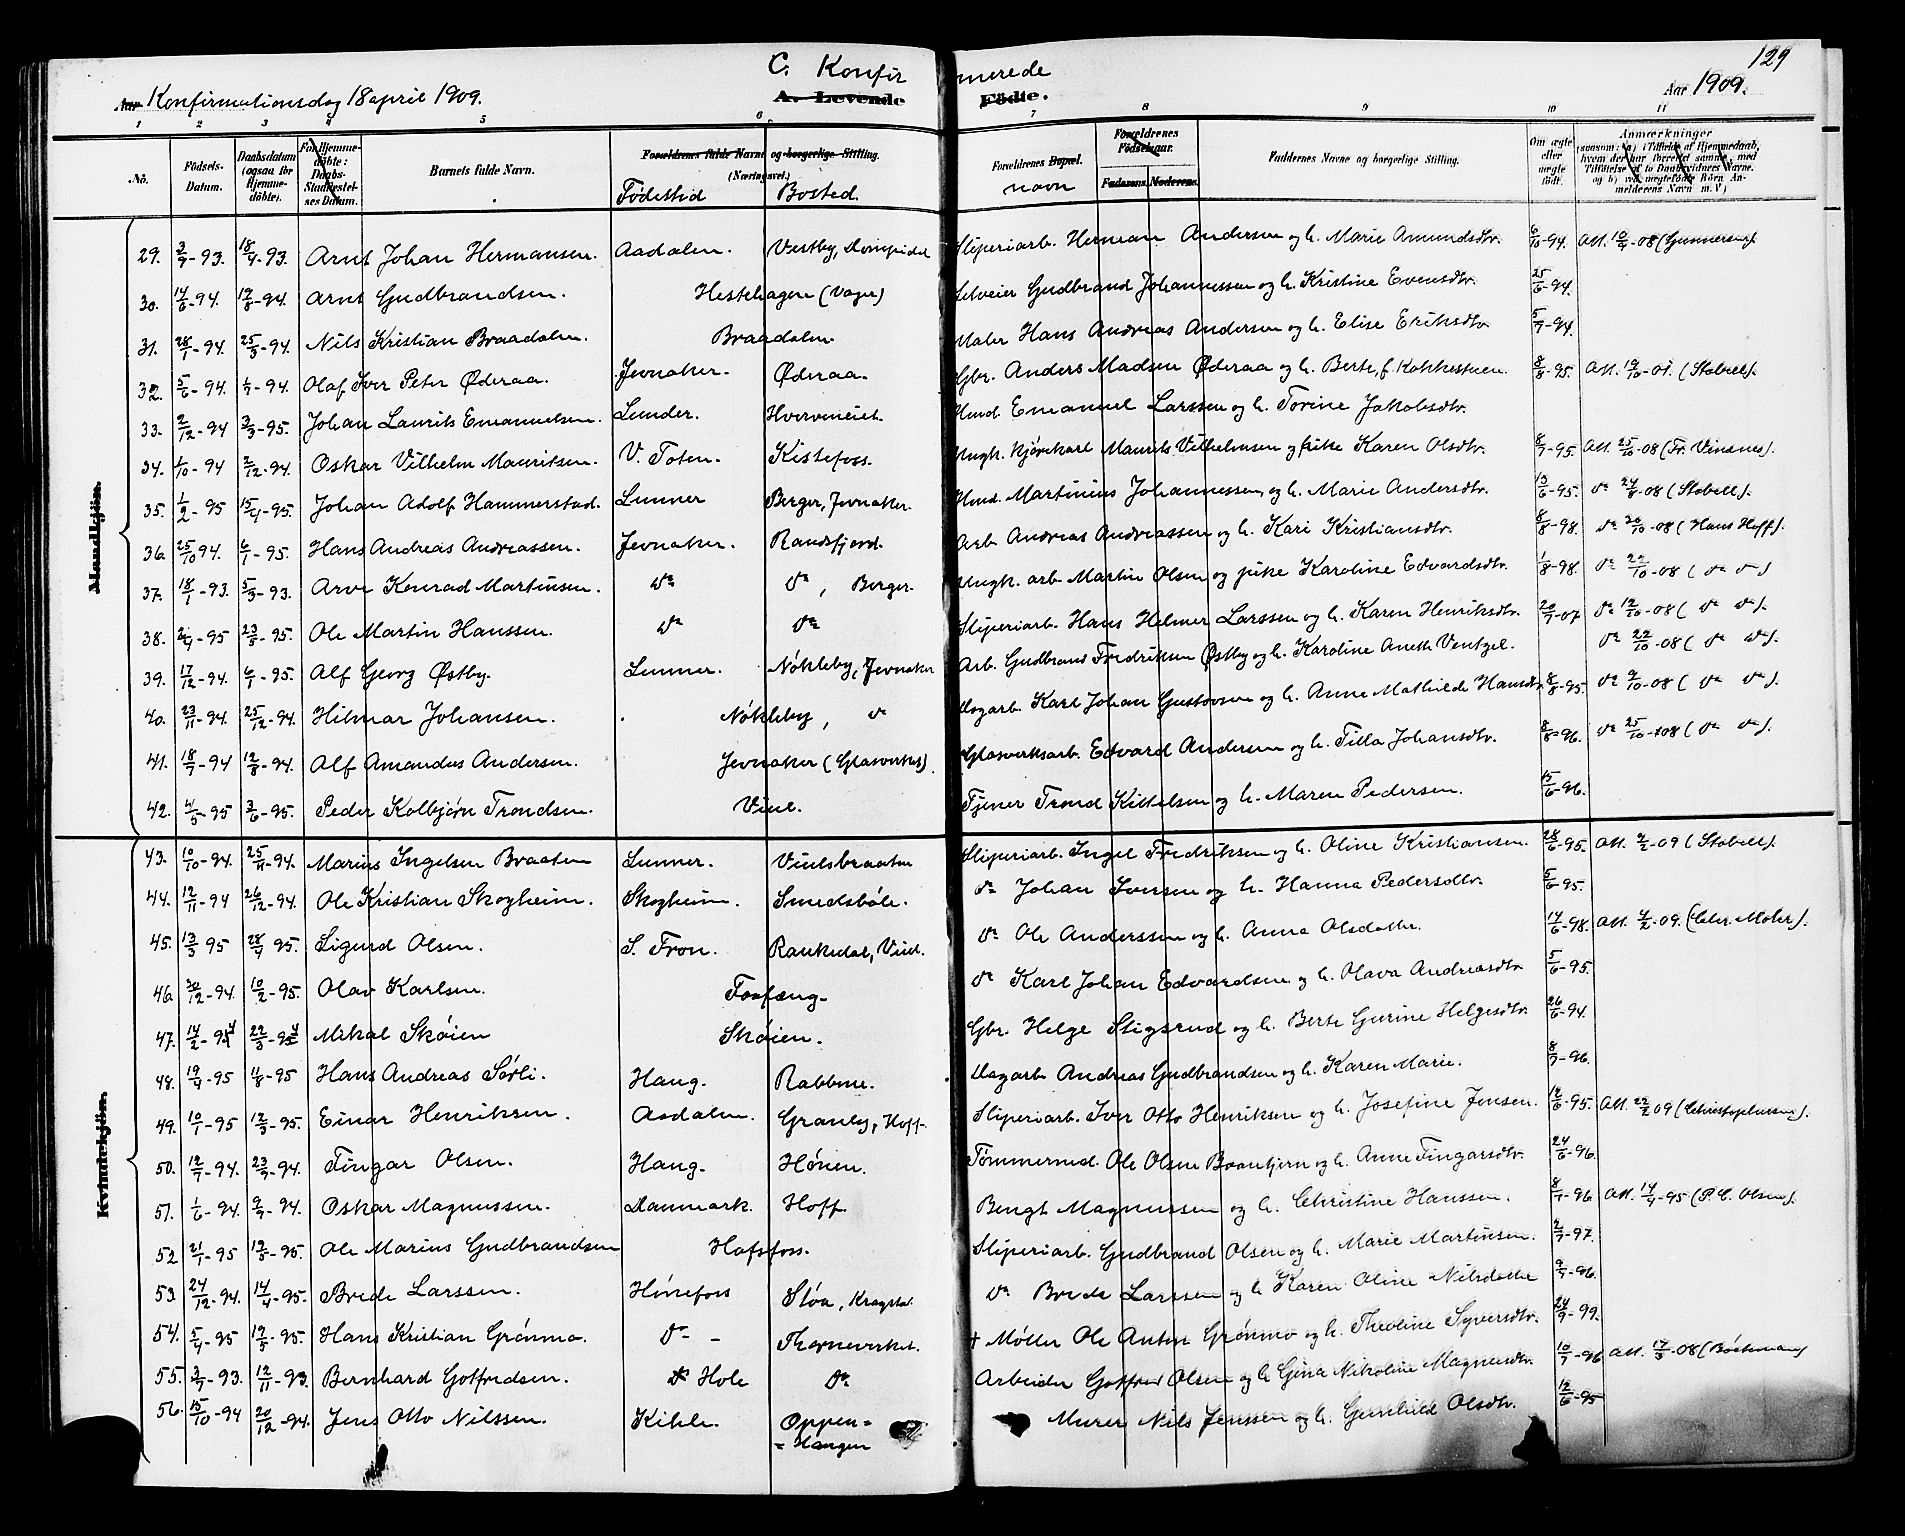 129
C. Konfirmerede
Aar Konfirmationsdag 18 april 1909.
A. Levende Födte.
Aar 1909.
1 2 3 4 5 6 7 8 9 10 11
No. Födsels-Datum. Daabsdatum (ogsaa for Hjemmedöbte). For Hjemmedöbte: Daabs-Stadfæstelses Datum. Barnets fulde Navn. Forældrenes fulde Navne og borgerlige Stilling. (Næringsvei.) Forældrenes Bopæl. Forældrenes Födselsaar. Faderens. Moderens. Faddernes Navne og borgerlige Stilling. Om ægte eller uægte födt. Anmærkninger
Fødested Bosted. navn
Mandkjön.
29. 3/7-93. 18/9-93. Arnt Johan Hermansen. Aadalen. Vestby, Sliperiarb. Herman Andersen og h. Marie Amundsdtr. 6/10-94. Att.
30. 14/6-94. 19/8-94. Arnt Gudbrandsen. Hestehagen (Vager) Selveier Gudbrand Johannessen og h. Kristine Evensdtr. 25/6-94.
31. 28/1-94. 25/3-94. Nils Kristian Braadalen. Braadalen. Maler Hans Andreas Andersen og h. Elise Eriksdtr. 5/7-94.
32. 5/6-94. 1/7-94. Olaf Iver Peter Øderaa. Jevnaker. Øderaa. Gbr. Anders Madsen Øderaa og h. Berte, f. Kokkestuen. 8/8-95. Att. 19/10-08. (Stabell).
33. 2/12-94 3/3-95. Johan Laurits Emanuelsen. Lunder. Hvervmoiet. Husd. Emanuel Larssen og h. Torine Jakobsdtr.
34. 1/10-94 2/12-94. Oskar Vilhelm Mauritsen. V. Toten. Kistefoss. Ungk. Kjørekarl Maurits Vilhelmsen og pike Karen Olsdtr. 8/7-95. Att. 25/10-08 (Fr. Vinsnes).
35. 1/2-95 15/4-95. Johan Adolf Hammerstad. Lunner Berger, Jevnaker. Husd. Martinius Johannessen og h. Marie Andersdtr. 13/6-95. do 24/8-08 (Stabell).
36. 25/10 94. 6/1-95. Hans Andreas Andreassen. Jevnaker. Randsfjord. Arb. Andreas Andreassen og h. Kari Kristiansdtr. 8/8-98. do 26/10-08 (Hans Hoff).
37. 18/1-93. 5/3-93. Arve Konrad Martinsen. do do, Berger. Ungk. arb. Martin Olsen og pike Karoline Edvardsdtr. 1/8-98. do 22/10-08 (do do)
38. 2/4-95 23/5-95. Ole Martin Hanssen. do do Sliperiarb. Hans Helmer Larssen og h. Karen Henriksdtr. 20/7-07 do 12/10-08 (do do).
39. 17/12-94. 6/1-95. Alf Georg Østby. Lunner. Nökleby, Jevnaker Arb. Gudbrand Fredriksen Østby og h. Karoline Aneth Ventzel. do 22/10-08 (do do).
40. 23/11-94. 25/12-94. Hilmar Johansen. Nökleby, do Dagarb. Karl Johan Gustavsen og h. Anne Mathilde Hansdtr. 8/8-95. do 9/10-08 (do do).
41. 18/7-94 12/8-94. Alf Amandus Andersen. Jevnaker (Glasverket). Glasverksarb. Edvard Andersen og h. Tilla Johansdtr. 8/8-96. do 25/10-08 (do do).
42. 4/5-95 3/6-95. Peder Kolbjørn Trondsen. Viul. Tjener Trond Kittelsen og h. Maren Pedersen. 15/6-96.
Kvindekjön.
43. 10/10-94. 25/11-94. Marius Ingelsen Braaten Lunner. Viulsbraaten Sliperiarb. Ingel Fredriksen og h. Oline Kristiansen. 28/6-95. Att. 2/2-09 (Stabell).
44. 12/11-94 26/12-94. Ole Kristian Skogheim. Skogheim. Smedsböle. do Johan Iversen og h. Hanna Pedersdtr. 5/6-95.
45. 13/3 95 28/4 95. Sigurd Olsen. S. Fron. Rankedal, Viul. do Ole Anderssen og h. Anna Olsdatter. 14/6-98. Att. 4/2-09. (Chr. Moler).
46. 30/12-94. 10/2-95. Olav Karlsen. Fosfæng. do Karl Johan Edvardsen og h. Olava Andreasdtr. 5/6-95.
47. 14/2-94 22/3-94 Mikal Sköien Sköien. Gbr. Helge Stigsrud og h. Berte Gurine Helgesdtr. 26/6-94.
48. 19/4-95 11/8-95 Hans Andreas Sörli. Haug. Rabbene. Dagarb. Andreas Gudbrandsen og h. Karen Marie. 8/7-96.
49. 10/1-95 12/3-95. Einar Henriksen. Aadalen. Granby, Hoff. Sliperiarb. Iver Otto Henriksen og h. Josefine Jensen. 12/6-95. Att. 22/2 09 (Christophersen).
50. 12/7-94. 23/9-94. Tingar Olsen. Haug. Hönen. Tömmermd. Ole Olsen Baantjern og h. Anne Tingarsdtr. 24/6-96.
51. 1/6-94. 9/7-94. Oskar Magnussen. Danmark. Hoff. Bengt Magnussen og h. Christine Hanssen. 8/7-96 Att. 14/4-95 (P. C. Olsen).
52 21/1-95 19/5-95. Ole Marius Gudbrandsen Hofsfoss. Sliperiarb. Gudbrand Olsen og h. Marie Martinsen. 2/7-97.
53. 24/12-94. 14/4-95. Brede Larssen. Hönefoss Slöa, Kragstad do Brede Larssen og h. Karen Oline Nilsdatter 9/7-96.
54. 5/4-95 19/5-95. Hans Kristian Grönmo. do - Thorneverket. † Møller Ole Anton Grønmo og h. Theoline Syversdtr. 24/9-99.
55. 3/7-93. 12/11-93. Bernhard Gotfredsen. Hole do Arbeider Gotfred Olsen og h Gina Nikoline Magnusdtr. 10/7-96 Att. 17/3-08 (Böckman)
56. 15/10-94 20/12-94. Jens Otto Nilssen. Kihle. Oppen=Haugen Murer Nils Jenssen og h. Gunhild Olsdtr. 12/6-95